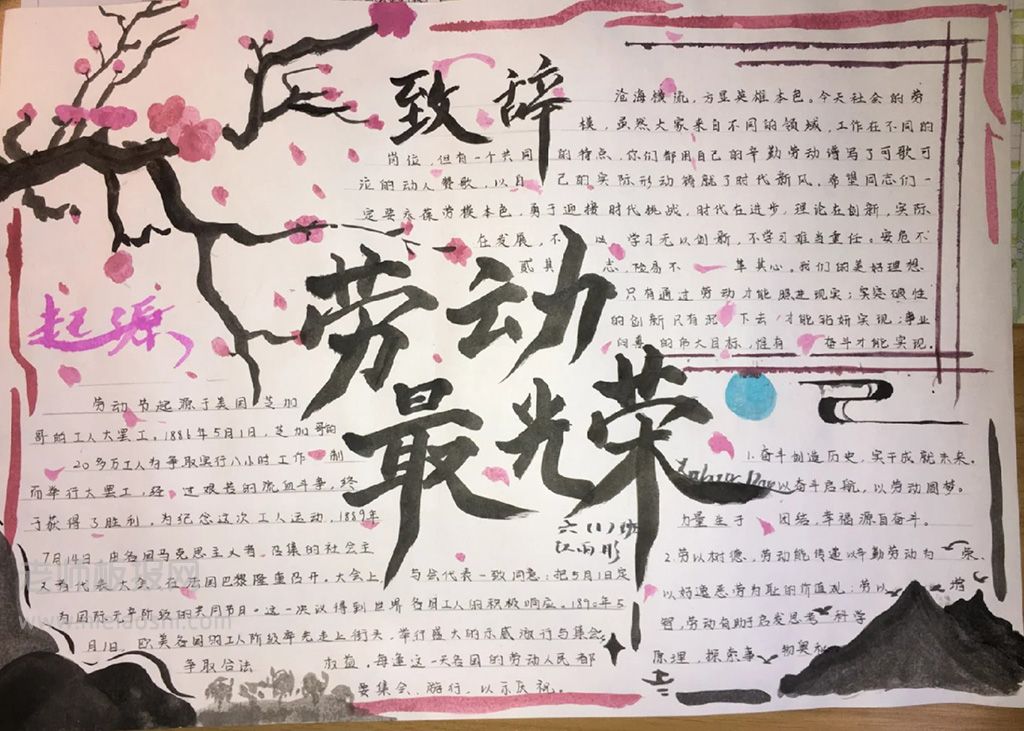 致辞
沧海横流，方显英雄本色。今天社会的劳
模，虽然大家来自不同的领域，工作在不同的
岗位，但有一个共同的特点，你们都用自己的辛勤劳动谱写了可歌可
泣的动人赞歌，以自己的实际形动铸就了时代新风。希望同志们一
定要永葆劳模本色，勇于迎接时代挑战，时代在进步，理论在创新，实际
在发展，不 以 学习无以创新，不学习难当重任。安危不
贰其 志，险易不 革其心。我们的美好理想
只有通过劳动才能照进现实；实突破性
的创新只有 下去 才能 实现；
的 大目标，惟有 奋斗才能实现。
劳动
最光荣
Labour Day
六(1)班
江雨彤
起源
劳动节起源于美国芝加
哥的工人大罢工。1886年5月1日，芝加哥的
20多万工人为争取实行八小时工作 制
而举行大罢工，经 过艰苦的流血斗争，终
于获得了胜利，为纪念这次工人运动，1889年
7月14日，由各国马克思主义者 召集的社会主
义 代表大会，在法国巴黎隆重召开。大会上， 与会代表一致同意：把5月1日定
为国际无产阶级的共同节日。这一决议得到世界各国工人的积极响应。1890年5
月1日， 欧美各国的工人阶级率先走上街头，举行盛大的示威游行与集会，
争取合法 权益，每逢这一天各国的劳动人民都
要集会、游行，以示庆祝。
1.奋斗创造历史，实干成就未来。
以奋斗启航，以劳动圆梦。
力量生于 团结，幸福源自奋斗。
2.劳以树德，劳动能传递以辛勤劳动为 荣、
以好逸恶劳为耻的价值观；劳以 增
智，劳动有助于启发思考 科学
原理，探索事 物奥秘
老师板报网
www.meidoshi.com